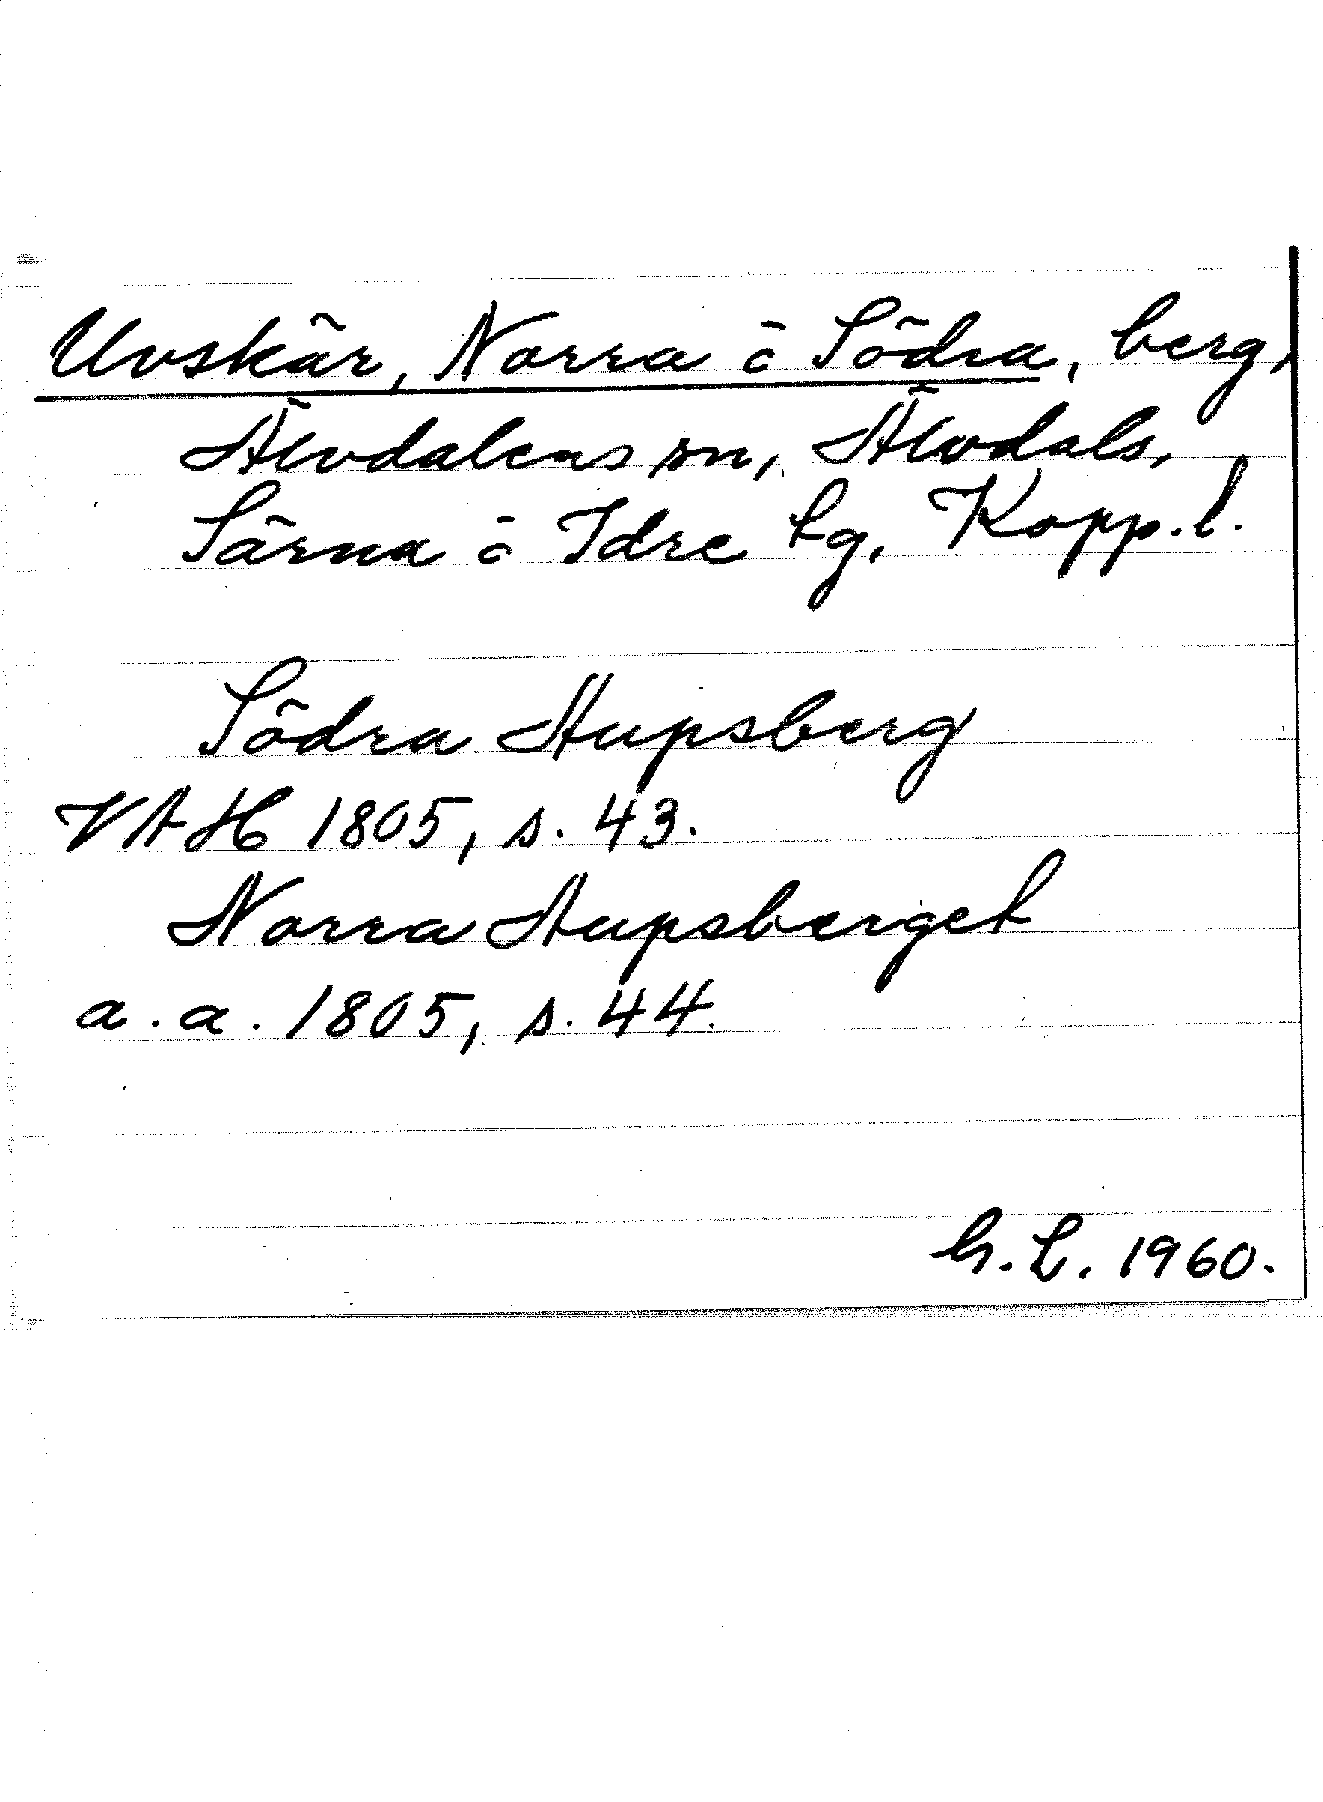 Uvskär, Norra o Södra, berg,
Älvdalens sn, Älvdals,
Särna o Idre tg, Kopp.l.
Södra Hupsberg
VAH 1805, s. 43.
Norra Hupsberget
a.a. 1805, s. 44.
G.L. 1960.